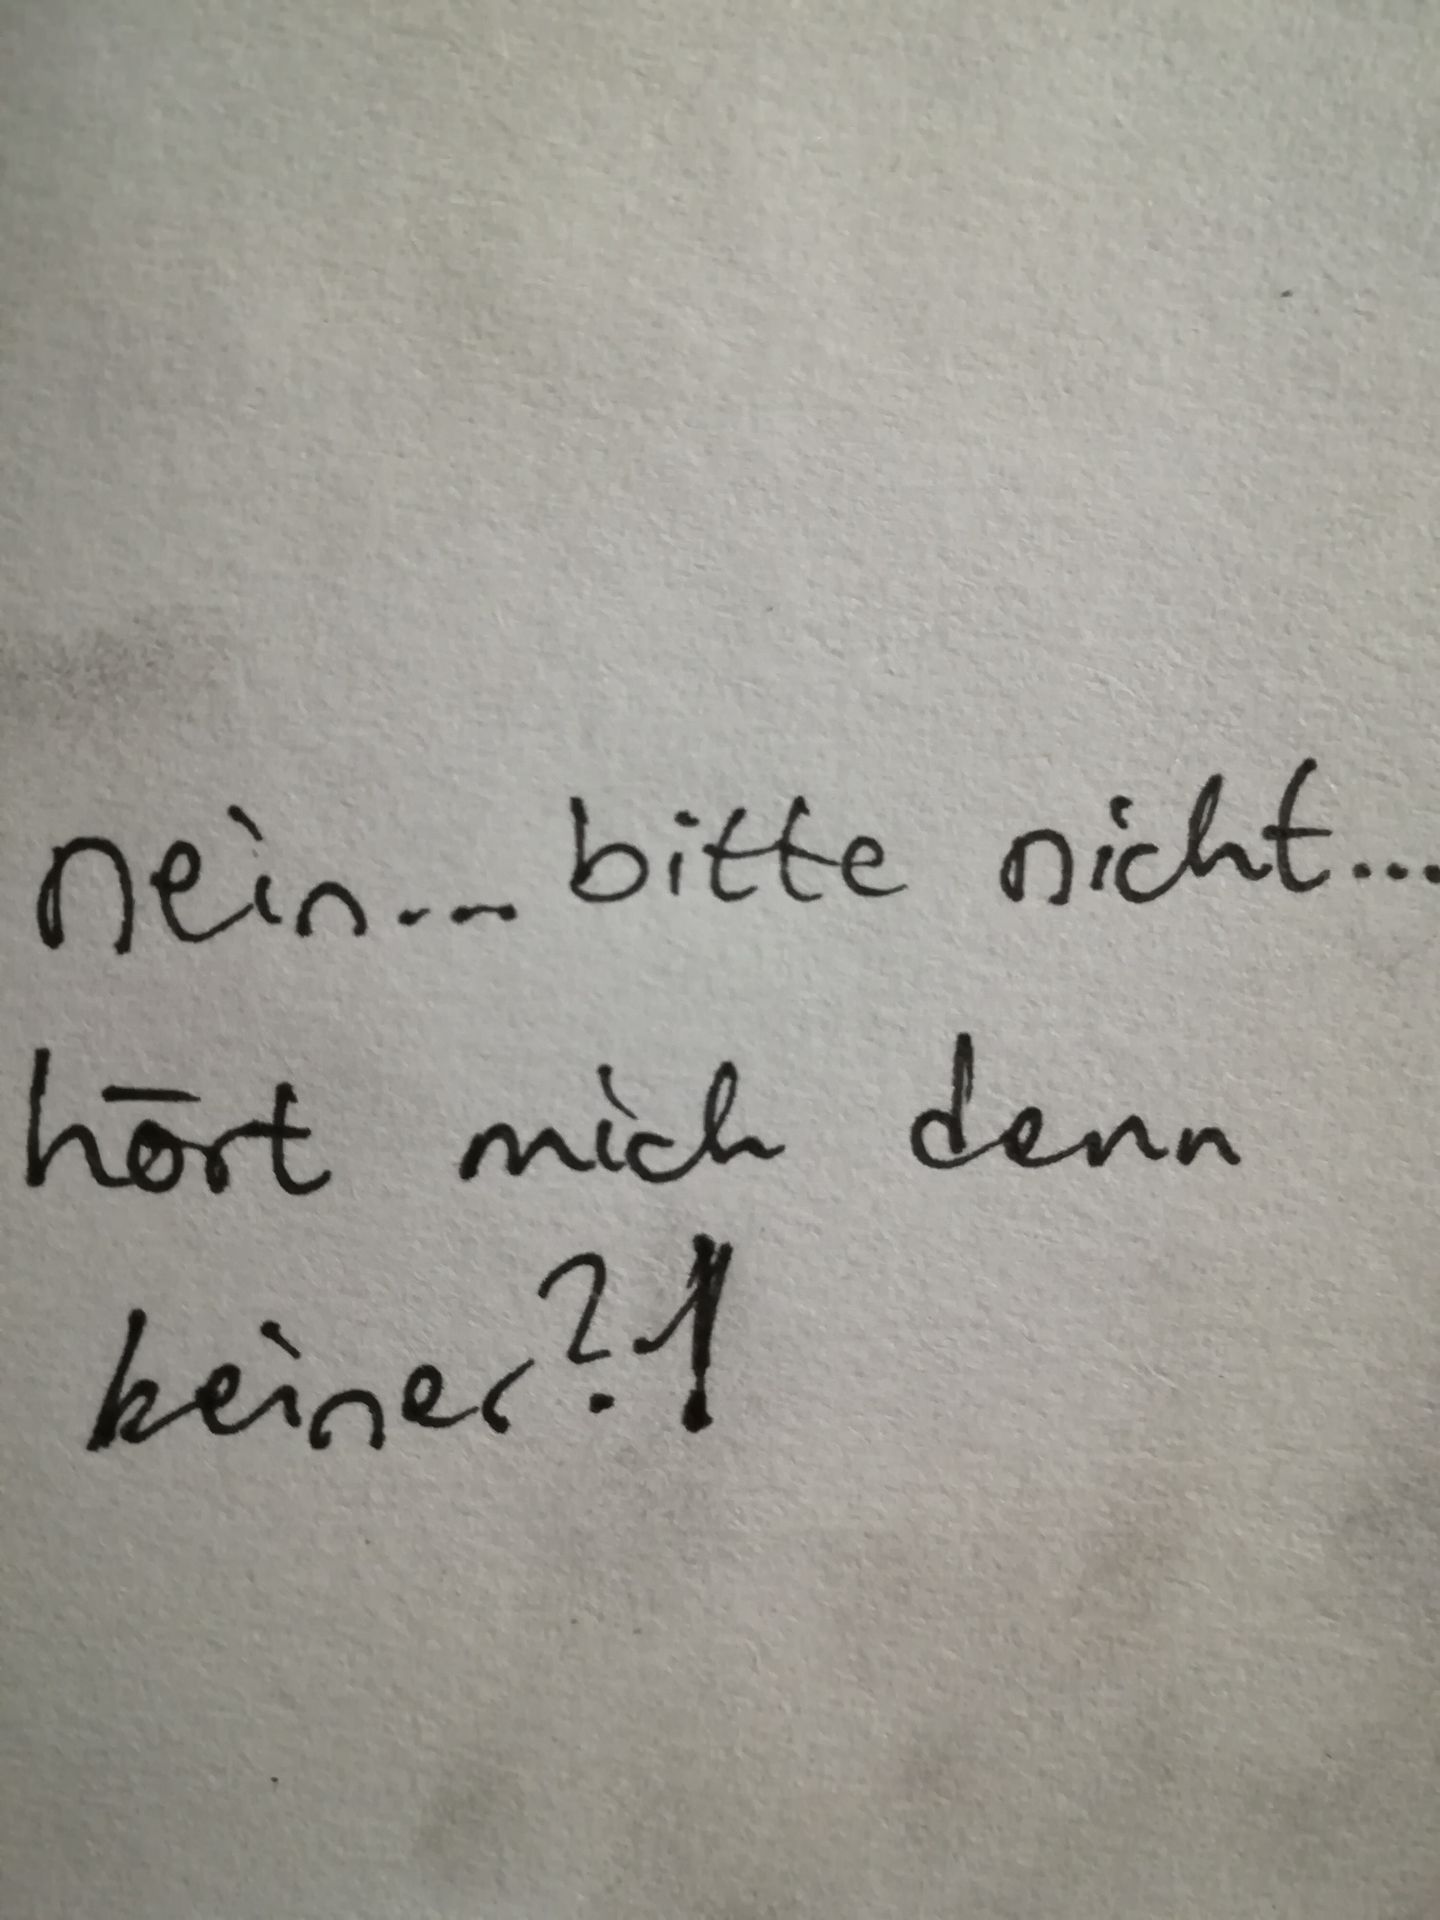 nein... bitte nicht...
hört mich denn
keiner?!